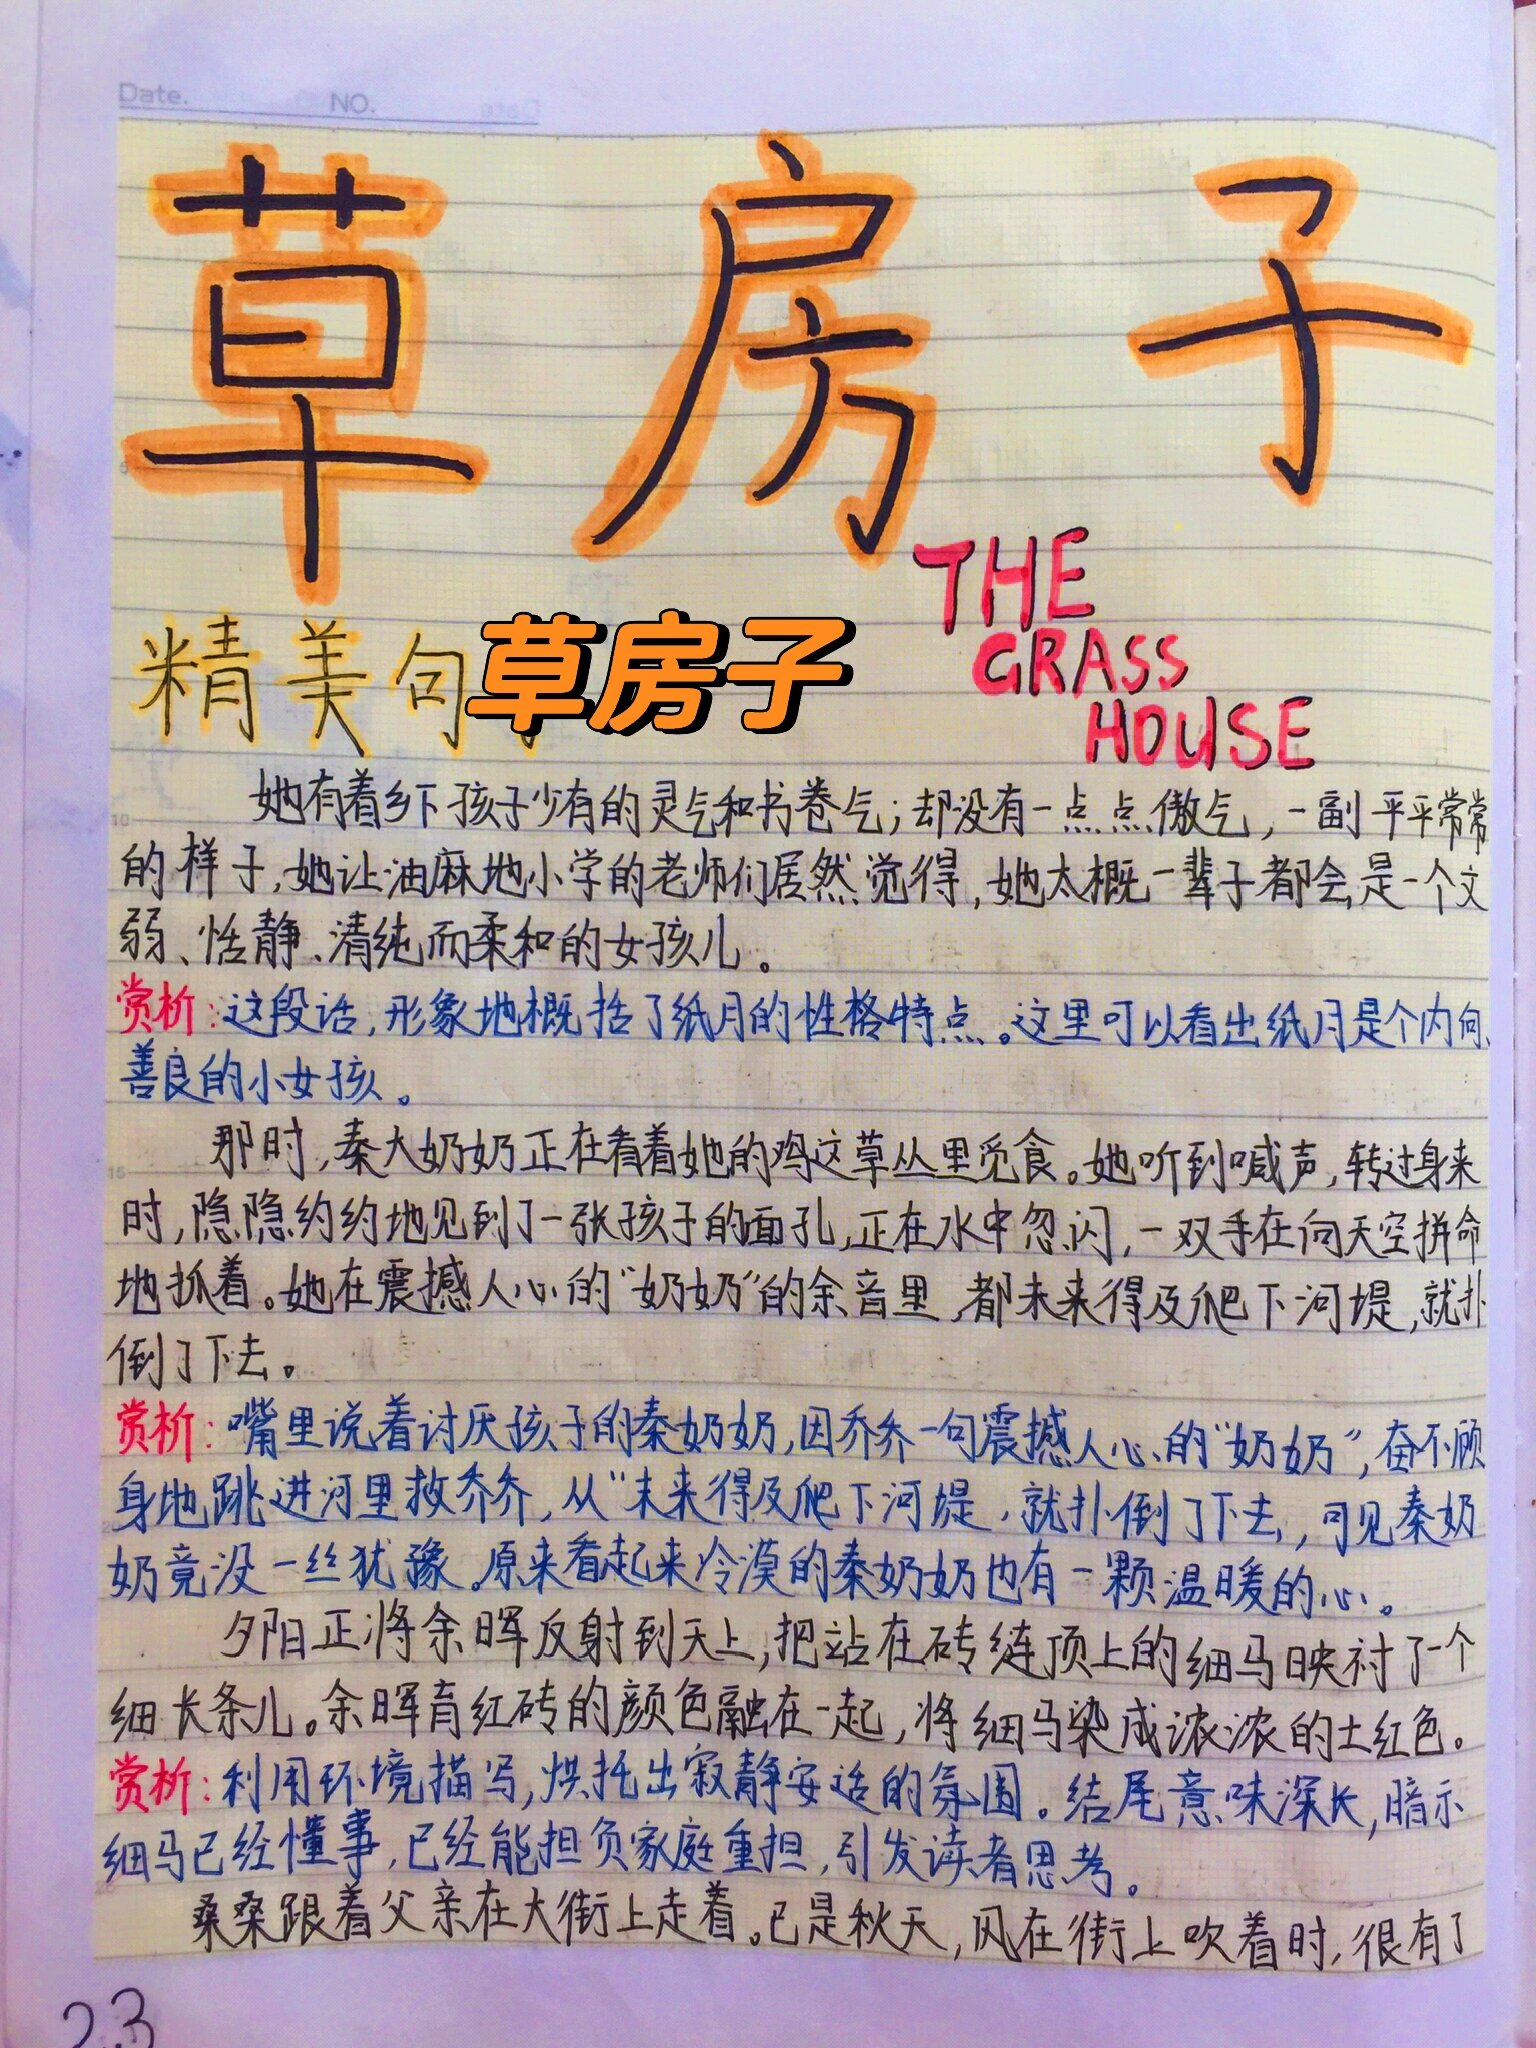 Date. NO.
草房子
THE
GRASS
HOUSE
精美句
草房子
她有着乡下孩子少有的灵气和书卷气；却没有一点点傲气，一副平平常常
的样子，她让油麻地小学的老师们居然觉得，她太概一辈子都会是一个文
弱、恬静、清纯而柔和的女孩儿。
赏析：这段话，形象地概括了纸月的性格特点。这里可以看出纸月是个内向
善良的小女孩。
那时，秦大奶奶正在看着她的鸡这草丛里觅食。她听到喊声，转过身来
时，隐隐约约地见到了一张孩子的面孔，正在水中忽闪，一双手在向天空拼命
地抓着。她在震撼人心的“奶奶”的余音里，都未来得及爬下河堤，就扑
倒了下去。
赏析：嘴里说着讨厌孩子的秦奶奶，因乔乔一句震撼人心的“奶奶”，奋不顾
身地跳进河里救乔乔，从“未来得及爬下河堤，就扑倒了下去，可见秦奶
奶竟没一丝犹豫。原来看起来冷漠的秦奶奶也有一颗温暖的心。
夕阳正将余晖反射到天上，把站在砖链顶上的细马映衬了一个
细长条儿。余晖育红砖的颜色融在一起，将细马染成浓浓的土红色。
赏析：利用环境描写，烘托出寂静安适的氛围。结尾意味深长，暗示
细马已经懂事，已经能担负家庭重担，引发读者思考。
桑桑跟着父亲在大街上走着。已是秋天，风在街上吹着时，很有了
23